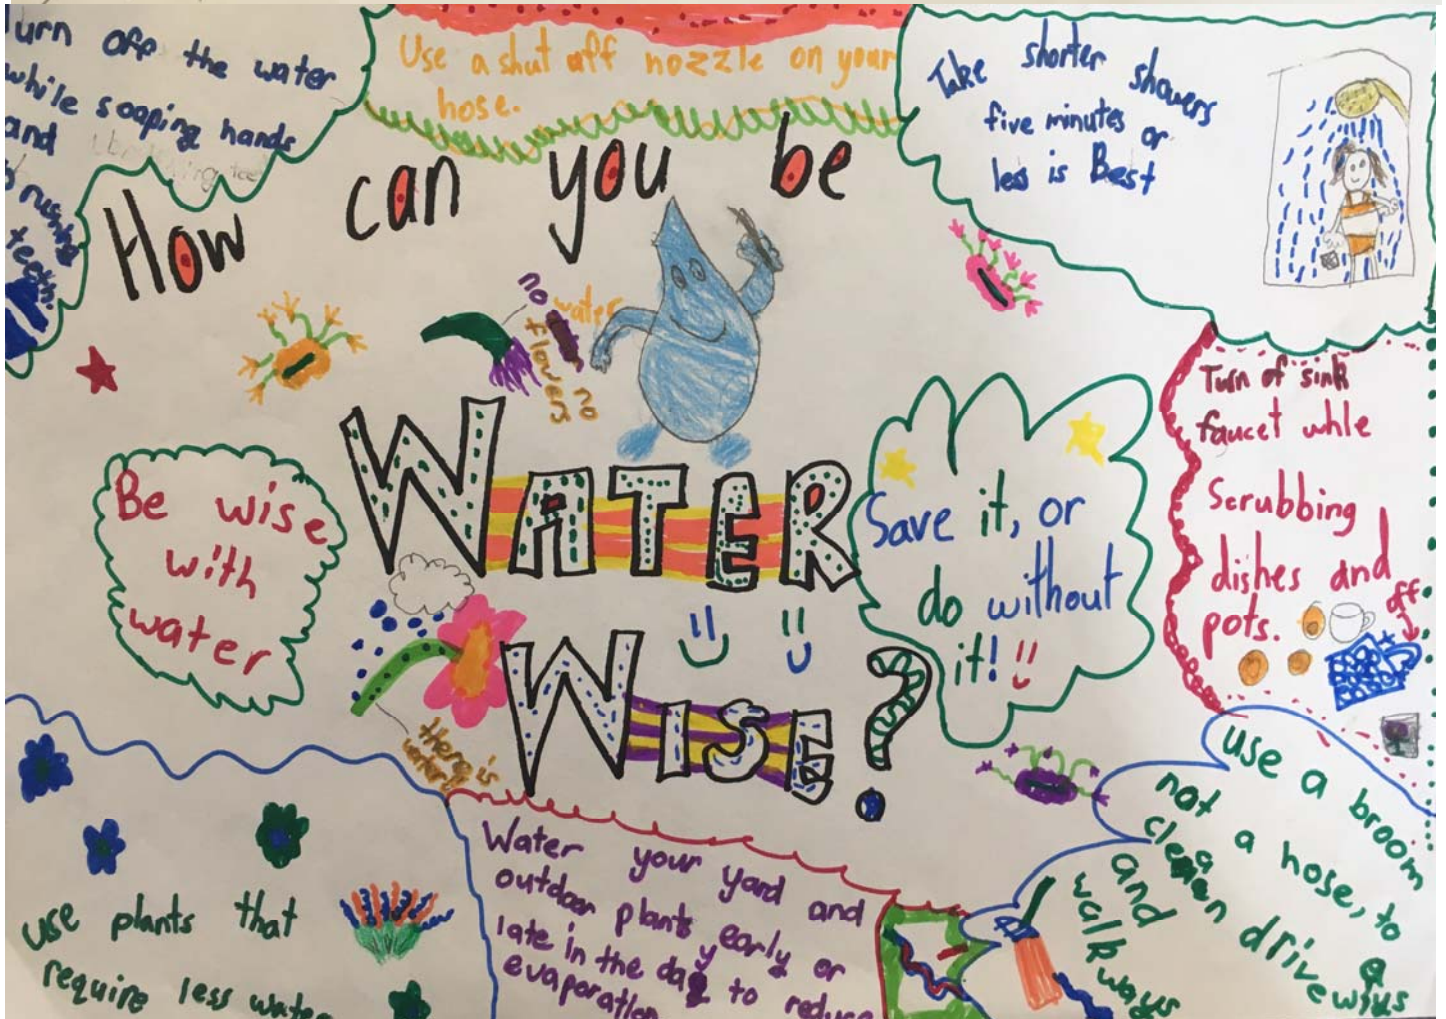 Turn off the water
while soaping hands
and
brushing
teeth.
Use a shut off nozzle on your
hose.
Take shorter showers
five minutes or
less is Best
How can you be
no water
no flowers
WATER
WISE?
Be wise
with
water
Save it, or
do without
it!
Turn of sink
faucet whle
Scrubbing
dishes and
pots.
off
there is
water
use plants that
require less water
Water your yard and
outdoor plants early or
late in the day to reduce
evaporation
use a broom
not a hose, to
clean driveways
and
walkways